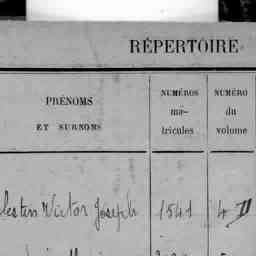 RÉPERTOIRE
PRÉNOMS
ET SURNOMS
NUMÉROS
ma-
tricules
NUMÉRO
du
volume
lestin Victor Joseph 1541 4